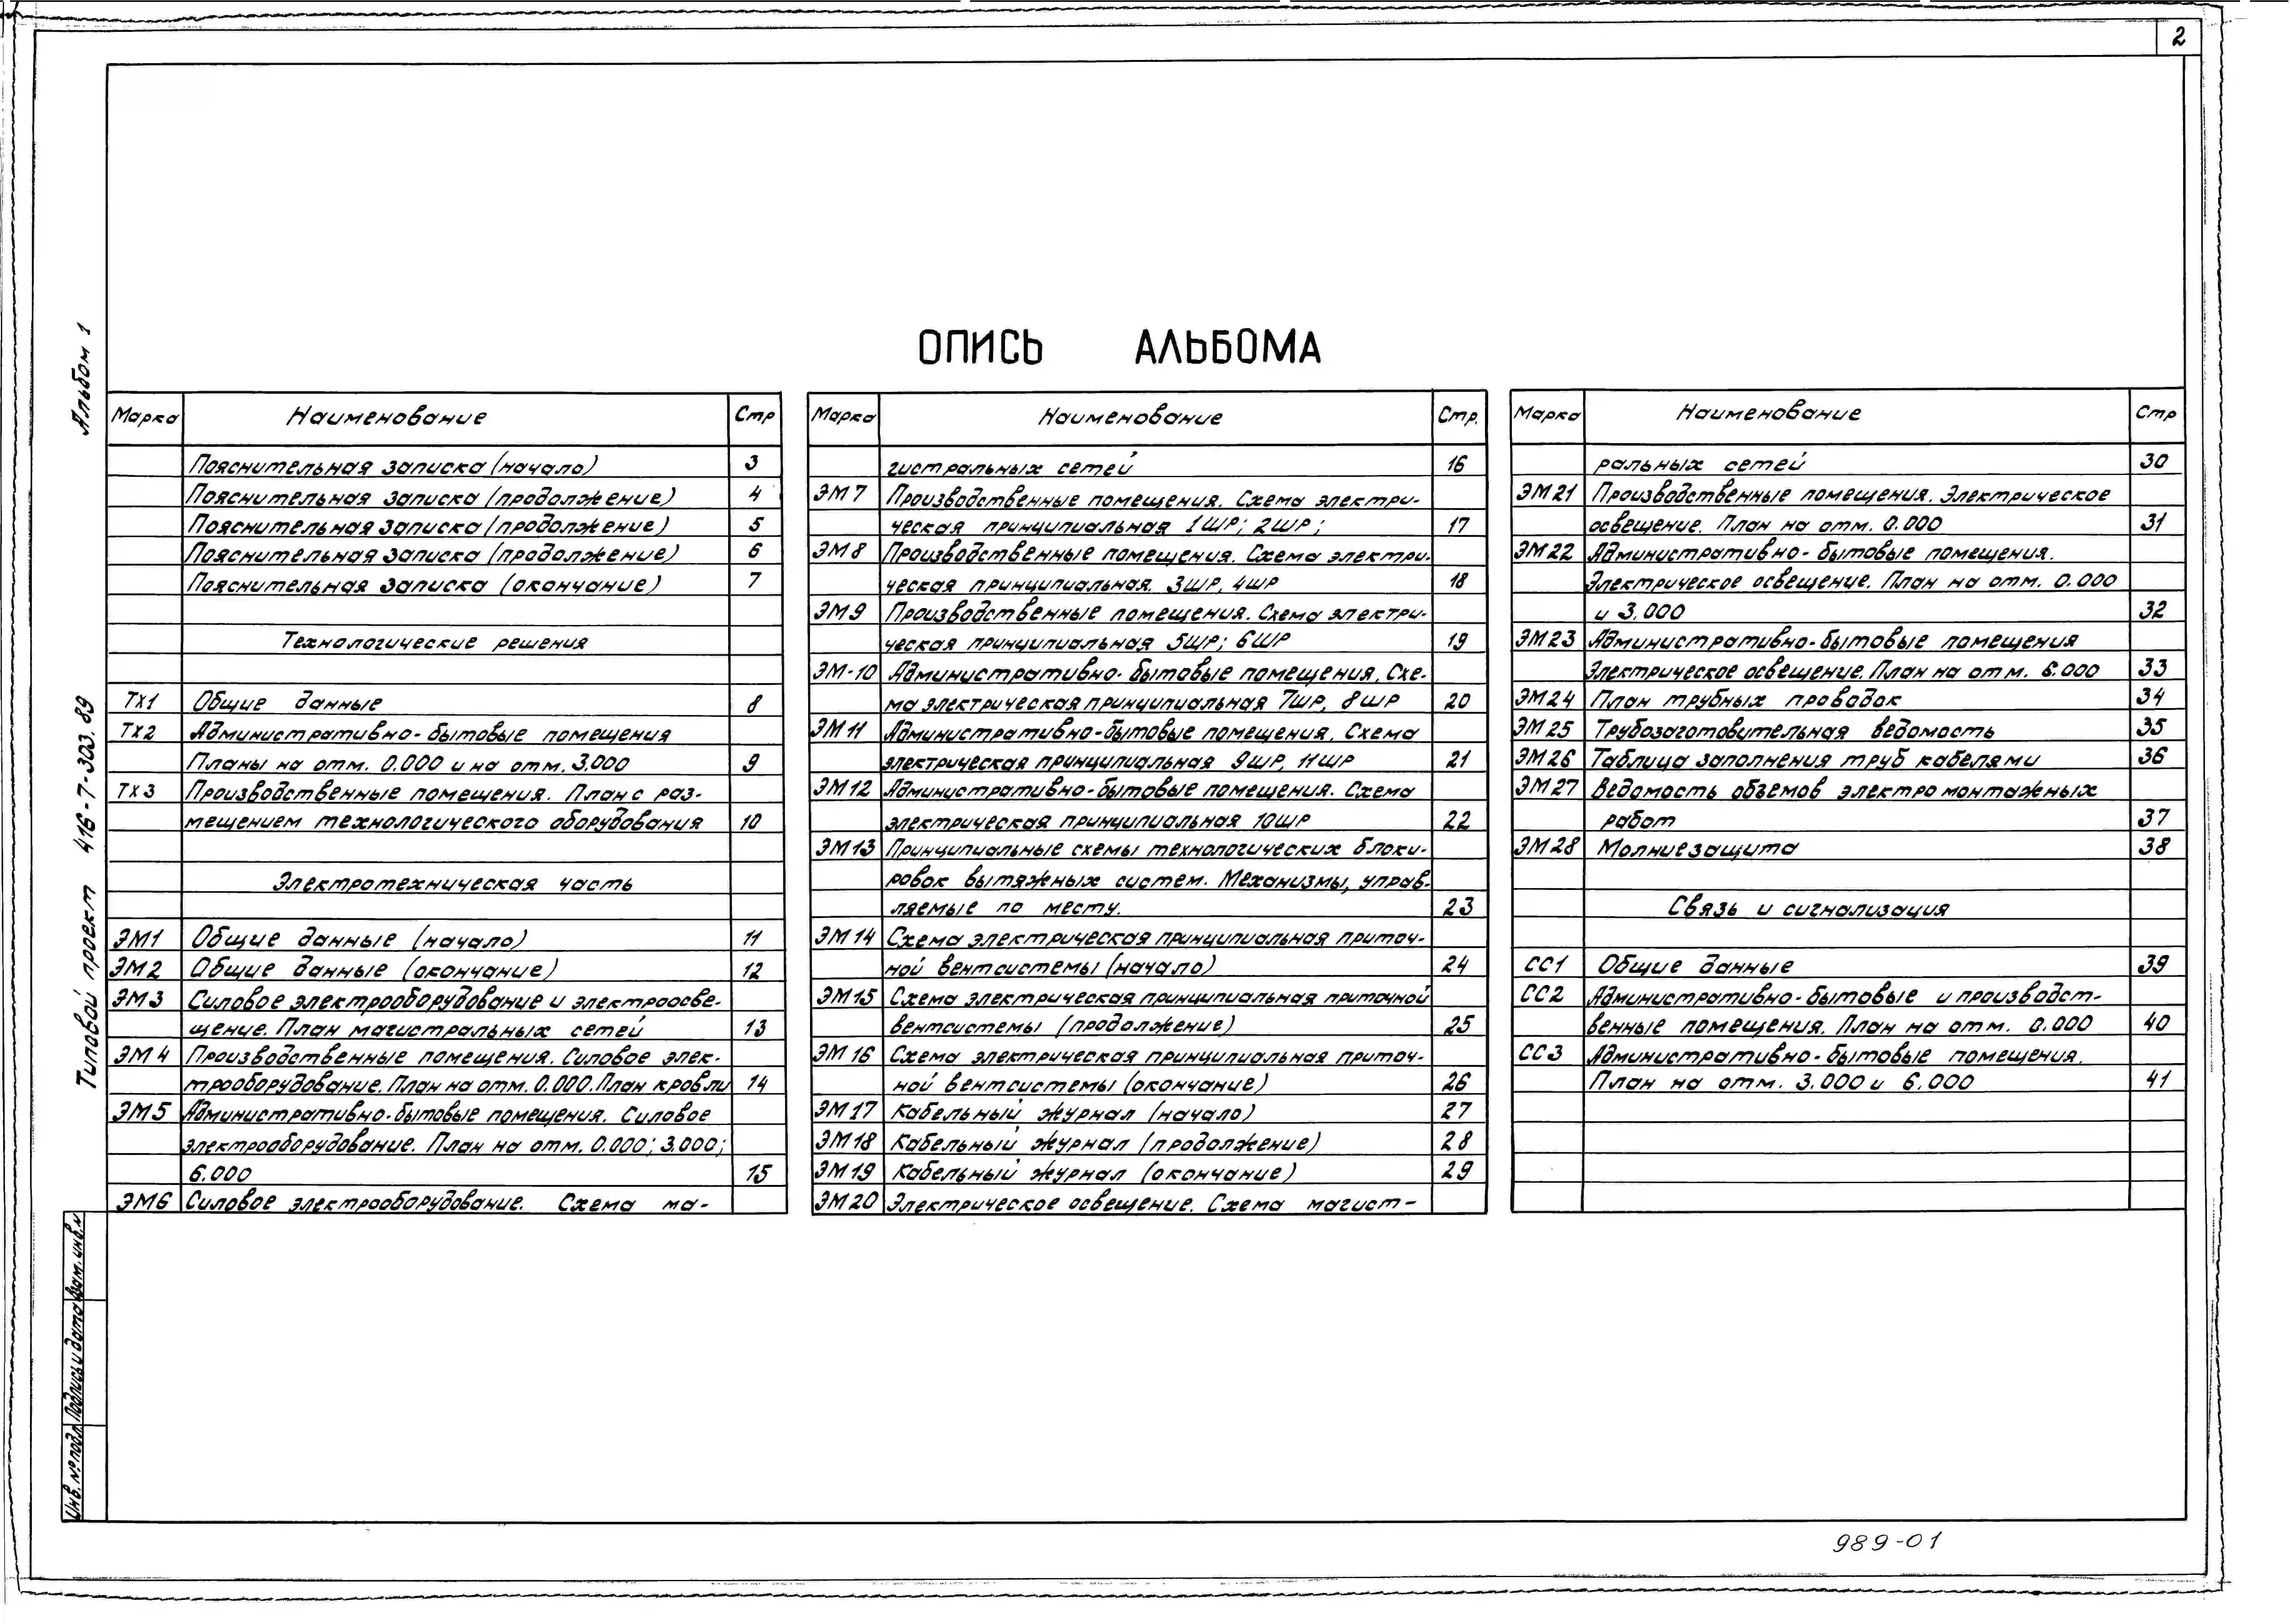 2
ОПИСЬ АЛЬБОМА
Альбом 1
Типовой проект 416-7-303.89
Марка Наименование Стр
Пояснительная записка (начало) 3
Пояснительная записка (продолжение) 4
Пояснительная записка (продолжение) 5
Пояснительная записка (продолжение) 6
Пояснительная записка (окончание) 7
Технологические решения
ТХ1 Общие данные 8
ТХ2 Административно-бытовые помещения
Планы на отм. 0.000 и на отм. 3.000 9
ТХ3 Производственные помещения. План с раз-
мещением технологического оборудования 10
Электротехническая часть
ЭМ1 Общие данные (начало) 11
ЭМ2 Общие данные (окончание) 12
ЭМ3 Силовое электрооборудование и электроосве-
щение. План магистральных сетей 13
ЭМ4 Производственные помещения. Силовое элек-
трооборудование. План на отм. 0.000. План кровли 14
ЭМ5 Административно-бытовые помещения. Силовое
электрооборудование. План на отм. 0.000; 3.000;
6.000 15
ЭМ6 Силовое электрооборудование. Схема ма-
Марка Наименование Стр.
гистральных сетей 16
ЭМ7 Производственные помещения. Схема электри-
ческая принципиальная 1ШР; 2ШР; 17
ЭМ8 Производственные помещения. Схема электри-
ческая принципиальная. 3ШР, 4ШР 18
ЭМ9 Производственные помещения. Схема электри-
ческая принципиальная 5ШР; 6ШР 19
ЭМ-10 Административно-бытовые помещения. Схе-
ма электрическая принципиальная 7ШР, 8ШР 20
ЭМ11 Административно-бытовые помещения. Схема
электрическая принципиальная 9ШР, 11ШР 21
ЭМ12 Административно-бытовые помещения. Схема
электрическая принципиальная 10ШР 22
ЭМ13 Принципиальные схемы технологических блоки-
ровок вытяжных систем. Механизмы, управ-
ляемые по месту. 23
ЭМ14 Схема электрическая принципиальная приточ-
ной вентсистемы (начало) 24
ЭМ15 Схема электрическая принципиальная приточной
вентсистемы (продолжение) 25
ЭМ16 Схема электрическая принципиальная приточ-
ной вентсистемы (окончание) 26
ЭМ17 Кабельный журнал (начало) 27
ЭМ18 Кабельный журнал (продолжение) 28
ЭМ19 Кабельный журнал (окончание) 29
ЭМ20 Электрическое освещение. Схема магист-
Марка Наименование Стр
ральных сетей 30
ЭМ21 Производственные помещения. Электрическое
освещение. План на отм. 0.000 31
ЭМ22 Административно-бытовые помещения.
Электрическое освещение. План на отм. 0.000
и 3.000 32
ЭМ23 Административно-бытовые помещения
Электрическое освещение. План на отм. 6.000 33
ЭМ24 План трубных проводок 34
ЭМ25 Трубозаготовительная ведомость 35
ЭМ26 Таблица заполнения труб кабелями 36
ЭМ27 Ведомость объемов электромонтажных
работ 37
ЭМ28 Молниезащита 38
Связь и сигнализация
СС1 Общие данные 39
СС2 Административно-бытовые и производст-
венные помещения. План на отм. 0.000 40
СС3 Административно-бытовые помещения.
План на отм. 3.000 и 6.000 41
Инв. № подл. Подпись и дата Взам. инв. №
989-01